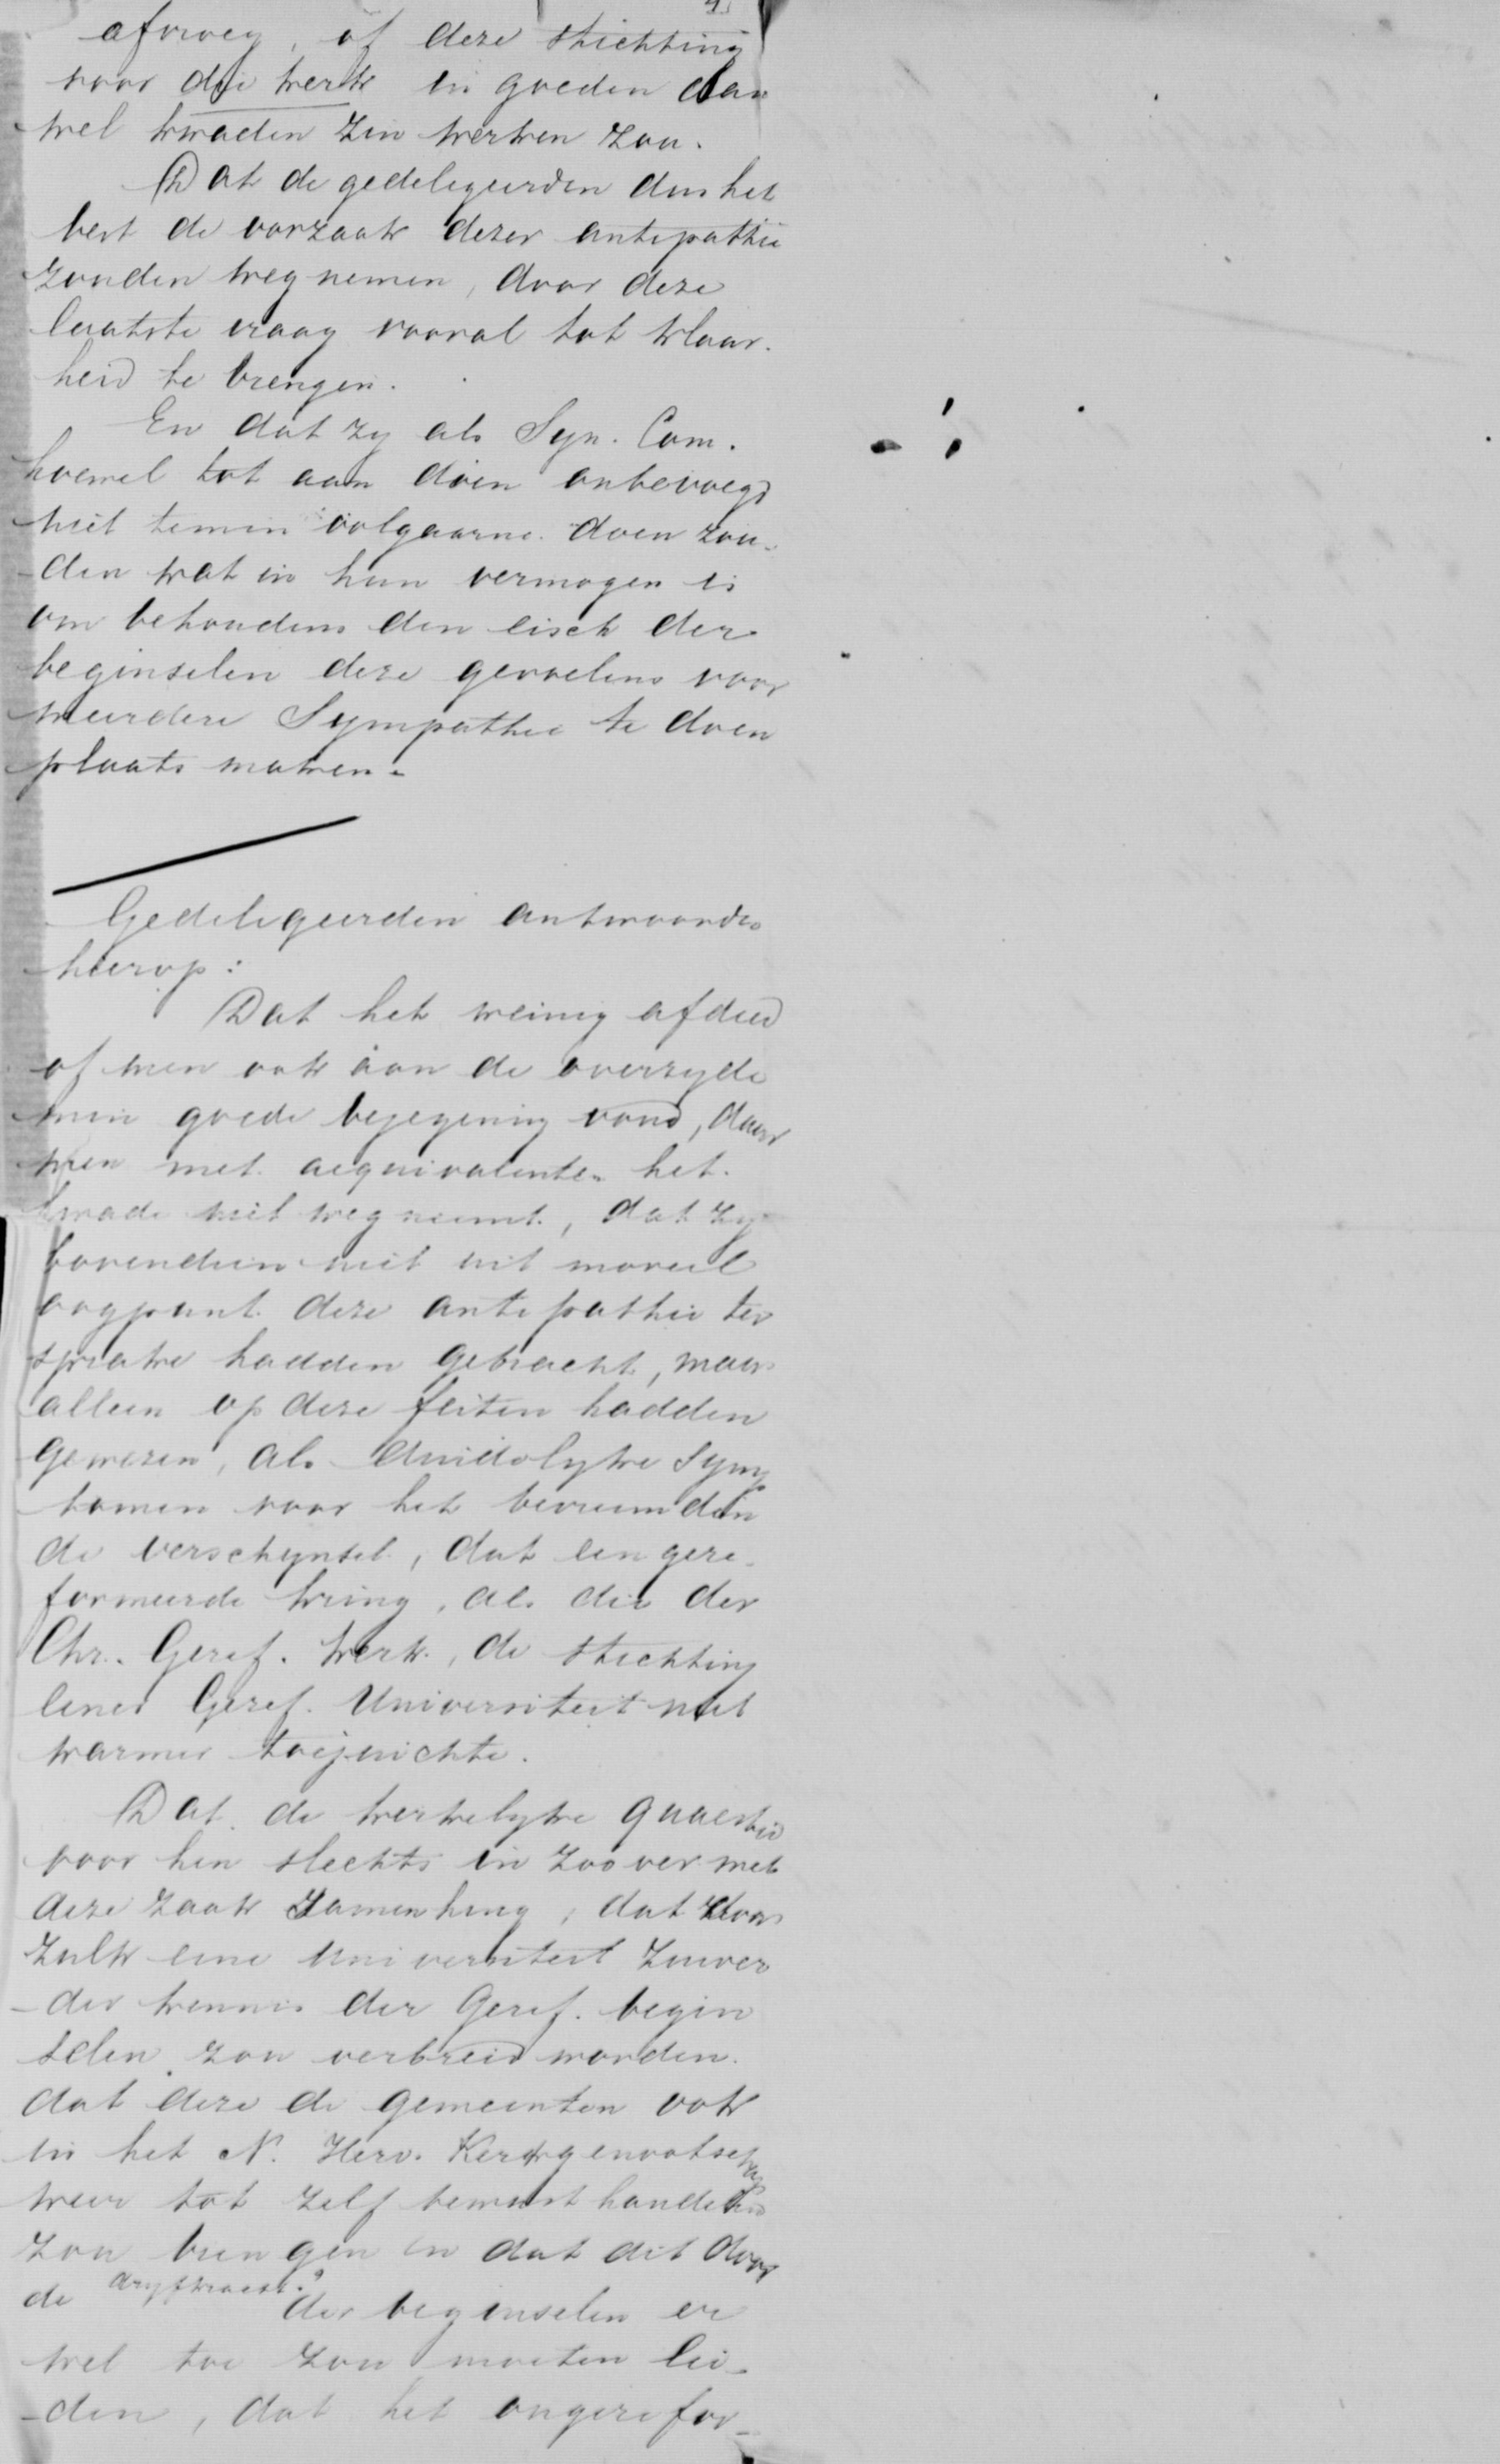 afvroeg, of deze stichting
voor die kerk in goeden dan
wel kwaden zin werken zou.
Dat de gedeligeerden dus het
best de oorzaak dezer antipathie
zouden wegnemen, door deze
laatste vraag vooral tot klaar-
heid te brengen.
En dat zy als Syn. Com.
hoewel tot aan doen onbevoegd
niet temin volgaarne doen zou-
den wat in hun vermogen is
om behoudens den eisch der
beginselen deze gevoelens voor
meerdere Sympathie te doen
plaats maken.
Gedeligeerden antwoorden
hierop:
Dat het weinig afdeed
of men ook aan de overzyde
min goede bejegening vond, daar
men met aequivalenten het
kwade niet wegneemt, dat zy
bovendien niet uit moreel
oogpunt deze antipathie ter
sprake hadden gebracht, maar
alleen op deze feiten hadden
gewezen, als duidelyke Symp
tomen voor het bevreemden
de verschynsel, dat een gere-
formeerde kring, als die der
Chr. Geref. kerk, de stichting
eener Geref. Universiteit niet
warmer toejuichte.
Dat de kerkelyke quaestie
voor hen slechts in zoover met
deze zaak zamenhing, dat door
zulk eene universiteit zuiver
der kennis der Geref. begin
selen zou verbreid worden.
dat deze de gemeenten ook
in het N. Herv. Kerkgenootschap
weer tot zelf bewust handelen
zou brengen en dat dit door
de drijfkracht?
der beginselen er
wel toe zou moeten lei-
den, dat het ongerefor-